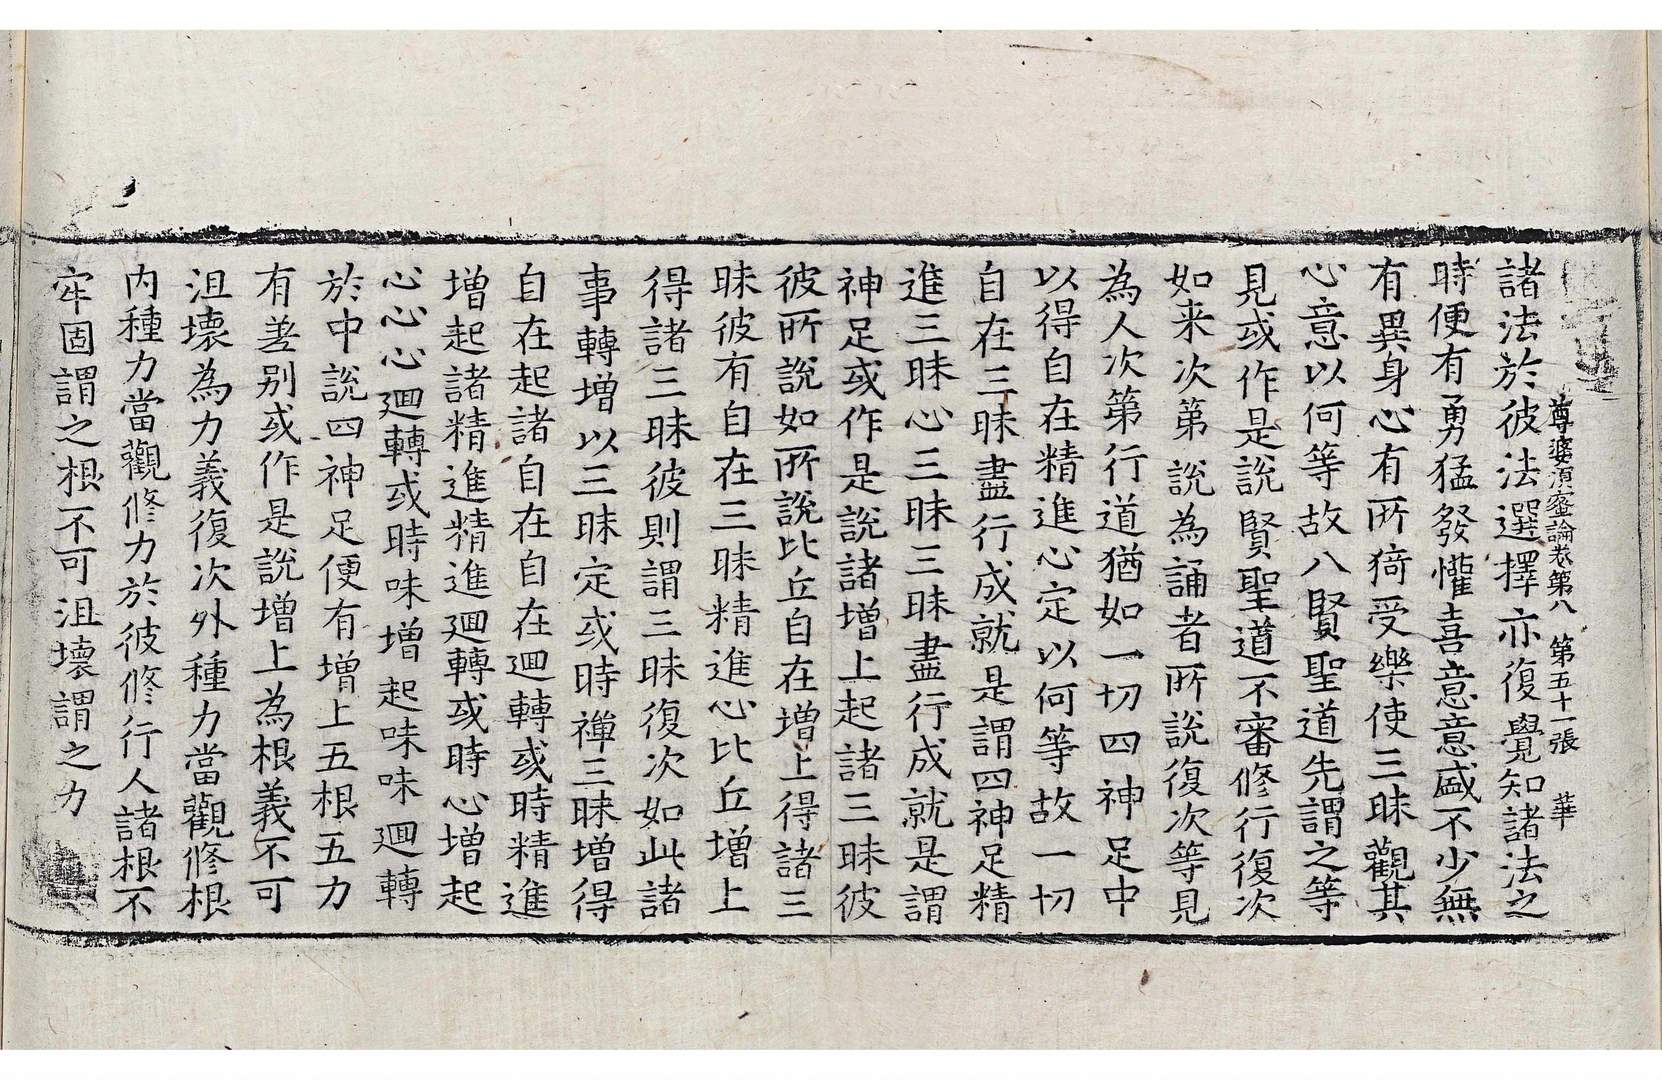 尊婆湏蜜論卷第八 第五十一張 華
諸法於彼法選擇亦復覺知諸法之
時便有勇猛發懽喜意意盛不少無
有異身心有所猗受樂使三昧觀其
心意以何等故八賢聖道先謂之等
見或作是說賢聖道不審修行復次
如来次第說為誦者所說復次等見
為人次第行道猶如一切四神足中
以得自在精進心定以何等故一切
自在三昧盡行成就是謂四神足精
進三昧心三昧三昧盡行成就是謂
神足或作是說諸增上起諸三昧彼
彼所說如所說比丘自在增上得諸三
昧彼有自在三昧精進心比丘增上
得諸三昧彼則謂三昧復次如此諸
事轉增以三昧定或時禪三昧增得
自在起諸自在自在迴轉或時精進
增起諸精進精進迴轉或時心增起
心心心迴轉或時味增起味味迴轉
於中說四神足便有增上五根五力
有差别或作是說增上為根義不可
沮壞為力義復次外種力當觀修根
内種力當觀修力於彼修行人諸根不
牢固謂之根不可沮壞謂之力